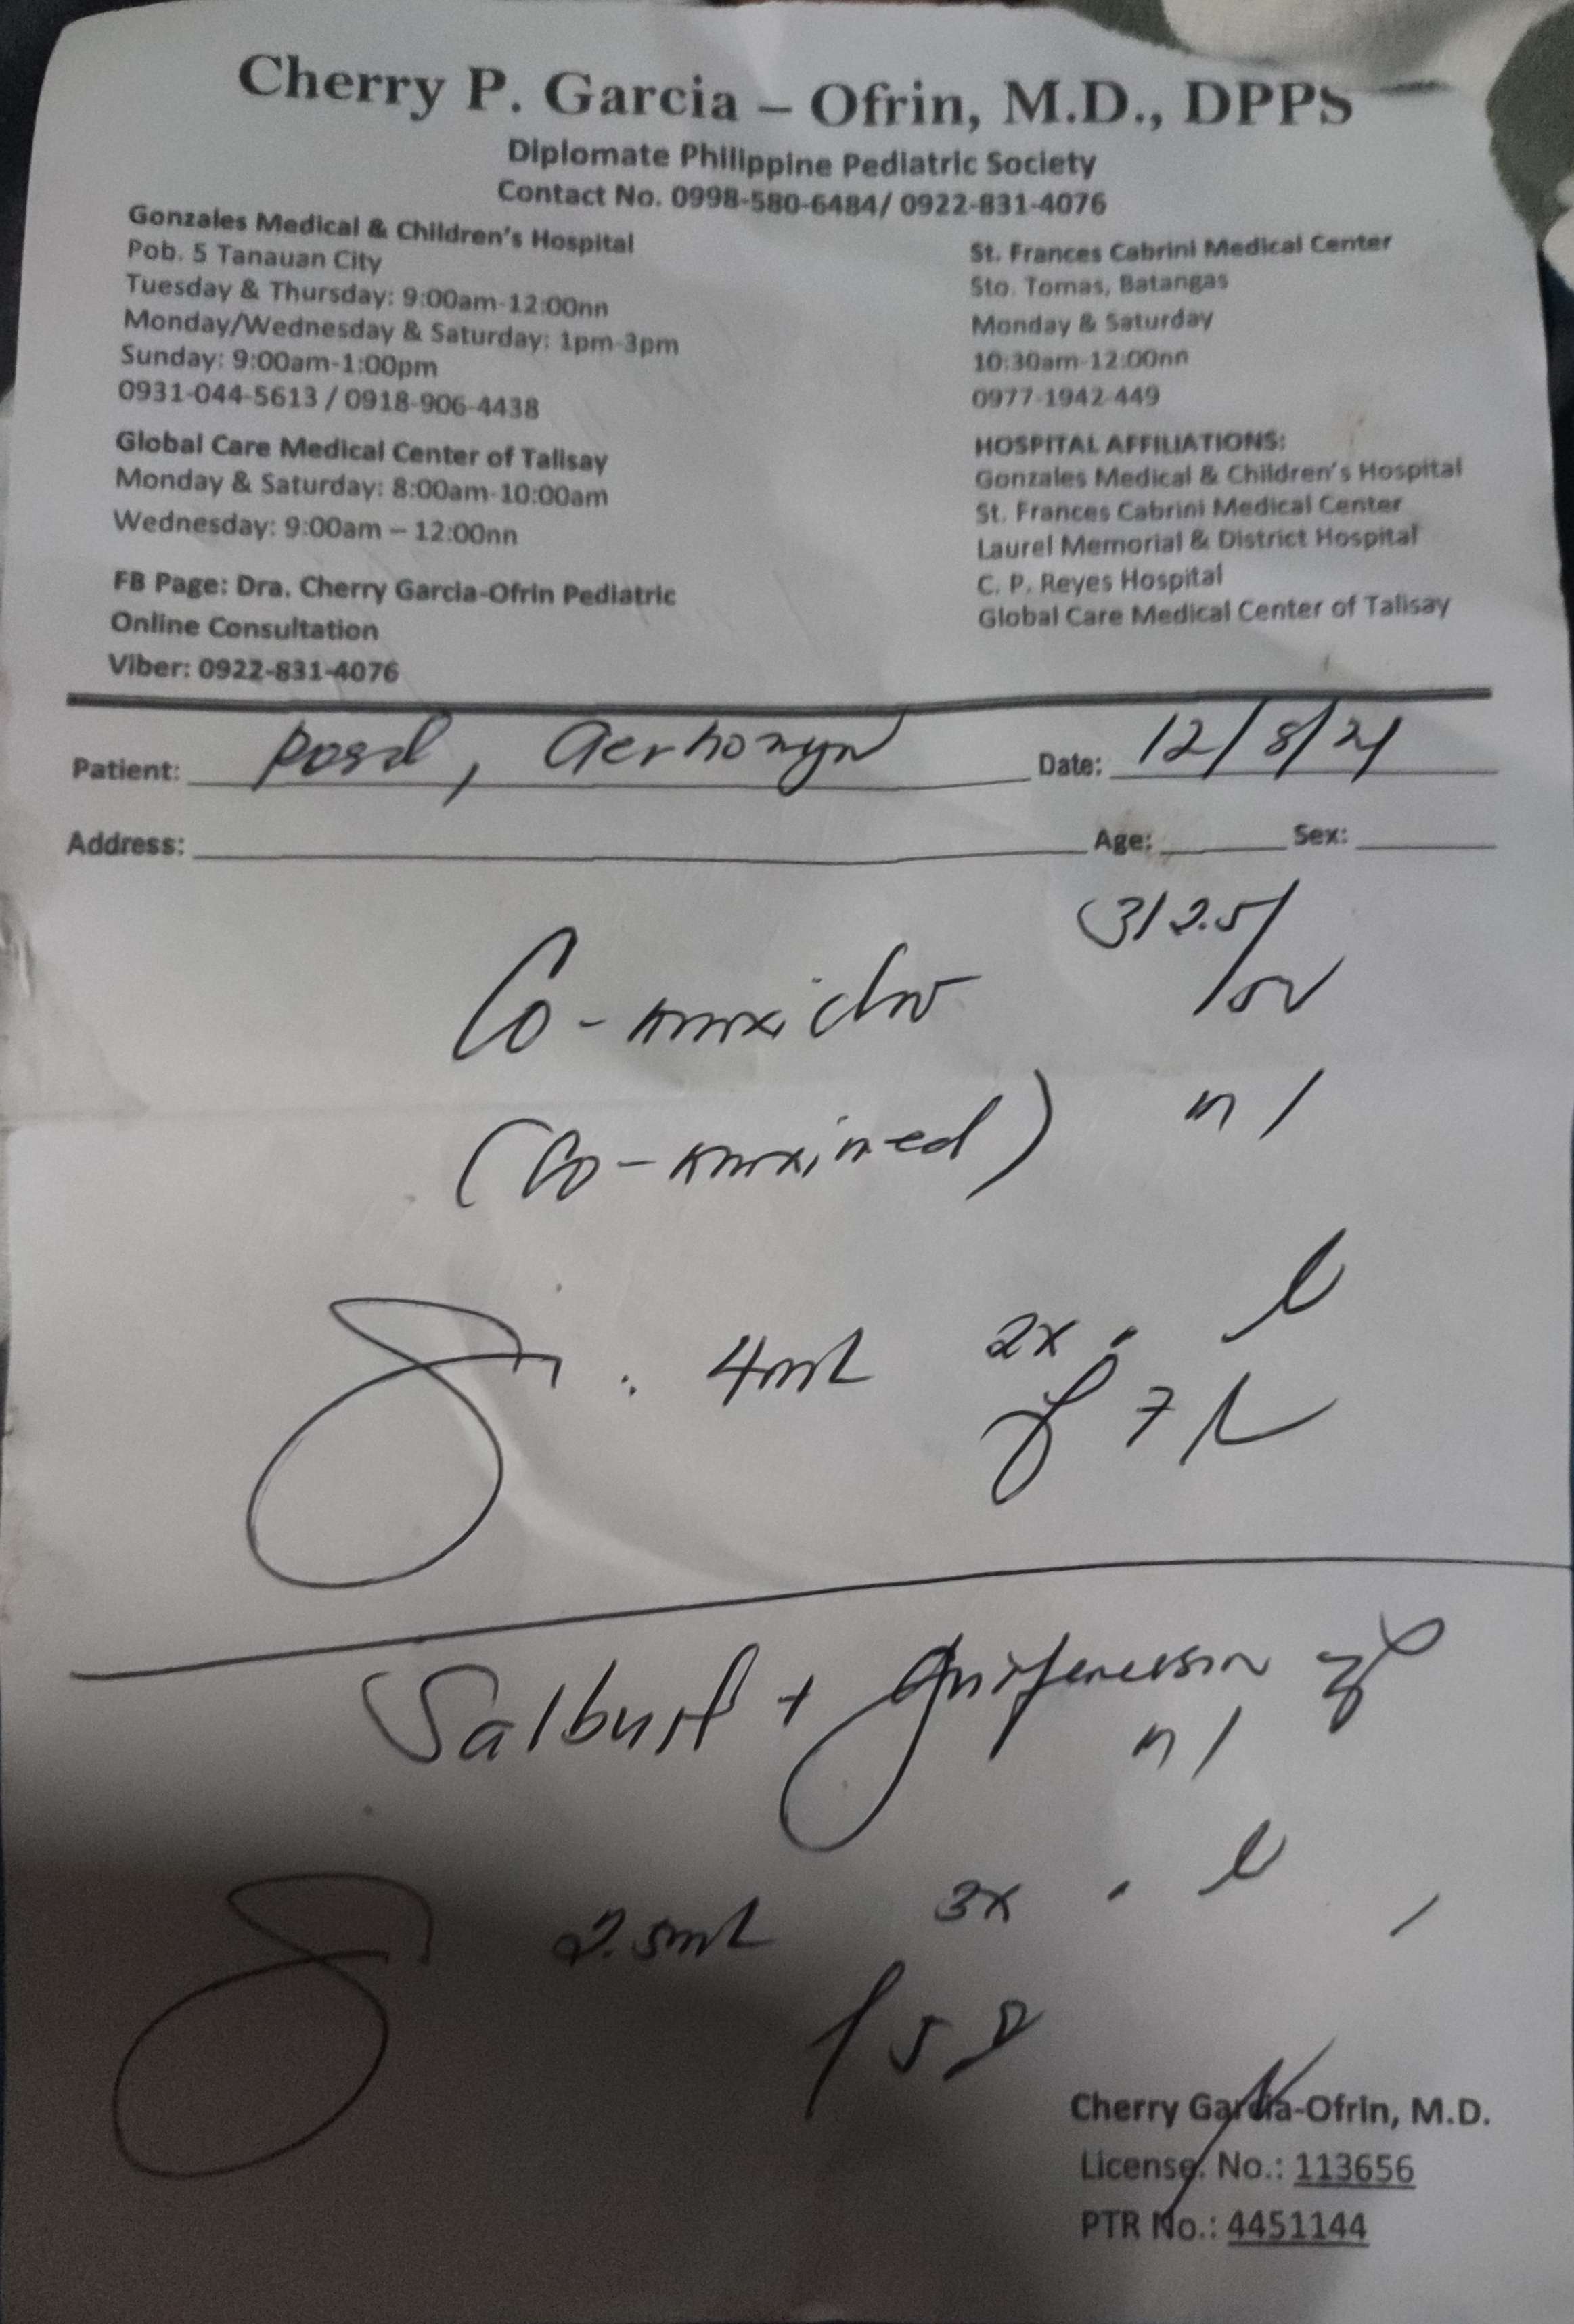 Cherry P. Garcia – Ofrin, M.D., DPPS
Diplomate Philippine Pediatric Society
Contact No. 0998-580-6484/ 0922-831-4076
Gonzales Medical & Children's Hospital
Pob. 5 Tanauan City
Tuesday & Thursday: 9:00am-12:00nn
Monday/Wednesday & Saturday: 1pm-3pm
Sunday: 9:00am-1:00pm
0931-044-5613 / 0918-906-4438
Global Care Medical Center of Talisay
Monday & Saturday: 8:00am-10:00am
Wednesday: 9:00am – 12:00nn
FB Page: Dra. Cherry Garcia-Ofrin Pediatric
Online Consultation
Viber: 0922-831-4076
St. Frances Cabrini Medical Center
Sto. Tomas, Batangas
Monday & Saturday
10:30am-12:00nn
0977-1942-449
HOSPITAL AFFILIATIONS:
Gonzales Medical & Children's Hospital
St. Frances Cabrini Medical Center
Laurel Memorial & District Hospital
C. P. Reyes Hospital
Global Care Medical Center of Talisay
Patient: Date:
Address: Age: Sex:
312.5/
4mL 2x
7
+
2.5mL 3x
5
Cherry Garcia-Ofrin, M.D.
License. No.: 113656
PTR No.: 4451144